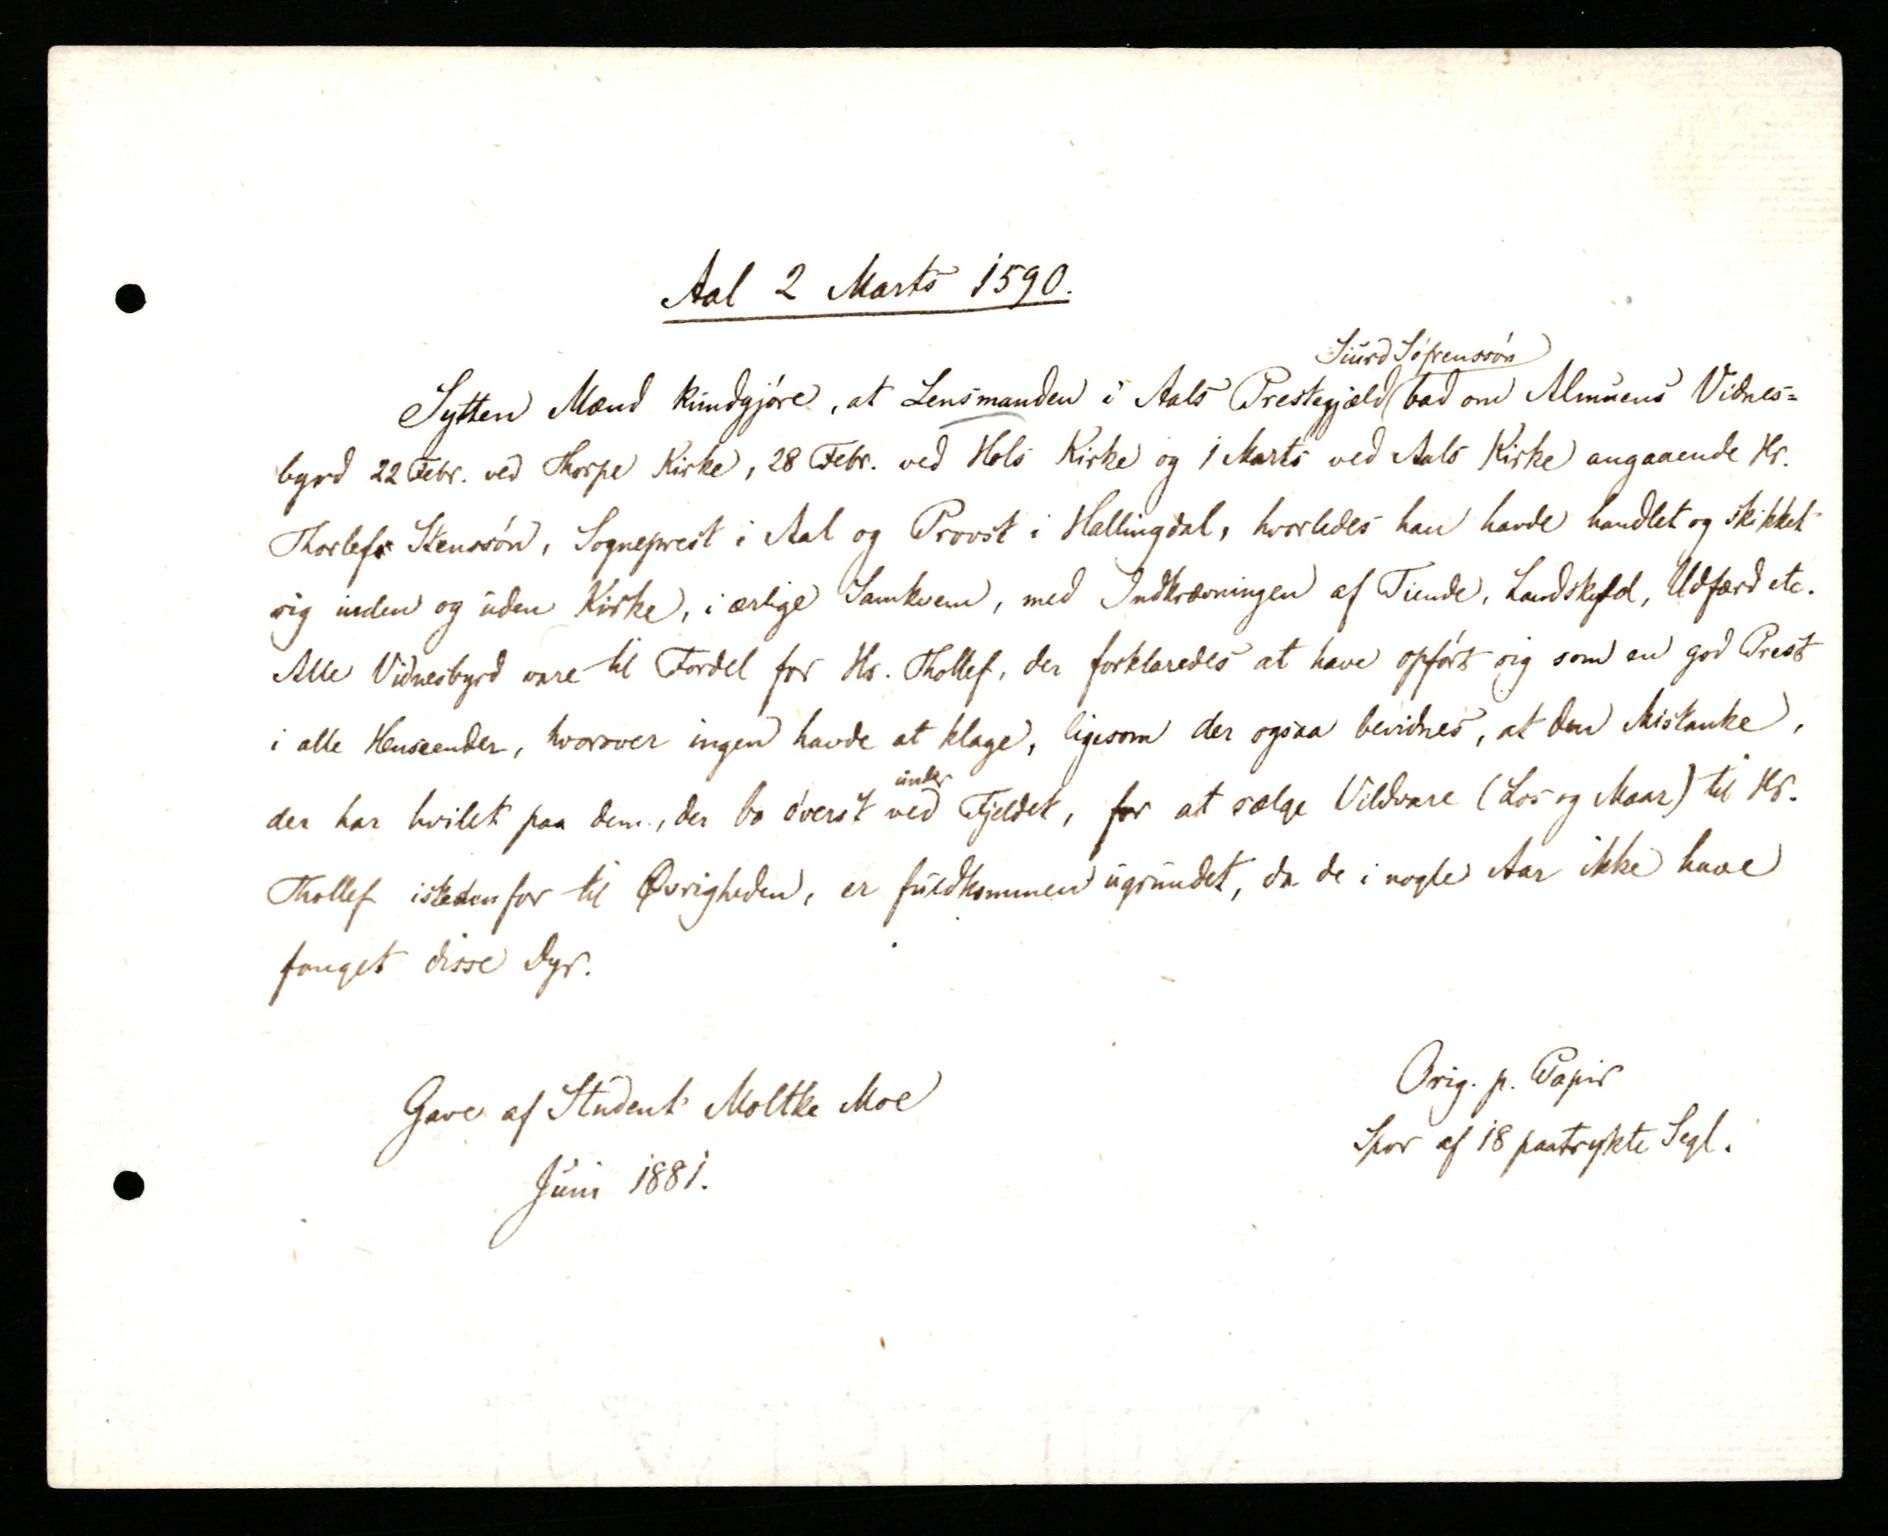 Aal 2 Marts 1590.
Siurd Söfrenssön
Sytten Mænd kundgjöre, at Lensmanden i Aals Prestegjæld (bad om Almuens Vidnes=
byrd 22 Febr. ved Thorpe Kirke, 28 Febr. ved Hols Kirke og 1 Marts ved Aals Kirke angaaende Hr.
Thorlef Stenssön, Sogneprest i Aal og Provst i Hallingdal, hvorledes han havde handlet og skikket
sig inden og uden Kirke, i ærlige Samkvem, med Indkrævningen af Tiende, Landskyld, Udfærd etc.
Alle Vidnesbyrd vare til Fordel for Hr. Thollef, der forklaredes at have opfört sig som en god Prest
i alle Henseender, hvorover ingen havde at klage, ligesom der ogsaa bevidnes, at den Mistanke,
under
der har hvilet paa dem, der bo överst ved Fjeldet, for at sælge Vildvare (Los og Maar) til Hr.
Thollef istedenfor til Øvrigheden, er fuldkommen ugrundet, da de i nogle Aar ikke have
fanget disse Dyr.
Orig. p. Papir
Gave af Student Moltke Moe
Spor af 18 paatrykte Segl.
Juni 1881.